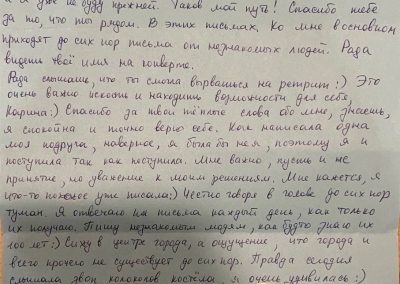 а я уже не буду прежней. Таков мой путь! Спасибо тебе
за то, что ты рядом. В этих письмах. Ко мне в основном
приходят до сих пор письма от незнакомых людей. Рада
видеть твоё имя на конверте.
Рада слышать, что ты смогла вырваться на ретрит :) Это
очень важно искать и находить возможности для себя,
Карина :) Спасибо за твои тёплые слова обо мне, знаешь,
я спокойна и точно верю себе. Как написала одна
моя подруга, наверное, я была бы не я, поэтому я и
поступила так как поступила. Мне важно, пусть и не
принятие, но уважение к моим решениям. Мне кажется, я
что-то похожее уже писала :) Честно говоря в голове до сих пор
туман. Я отвечаю на письма каждый день, как только
их получаю. Пишу незнакомым людям, как будто знаю их
100 лет :) Сижу в центре города, а ощущение, что города и
всего прочего не существует до сих пор. Правда сегодня
слышала звон колоколов костёла, я очень удивилась :)